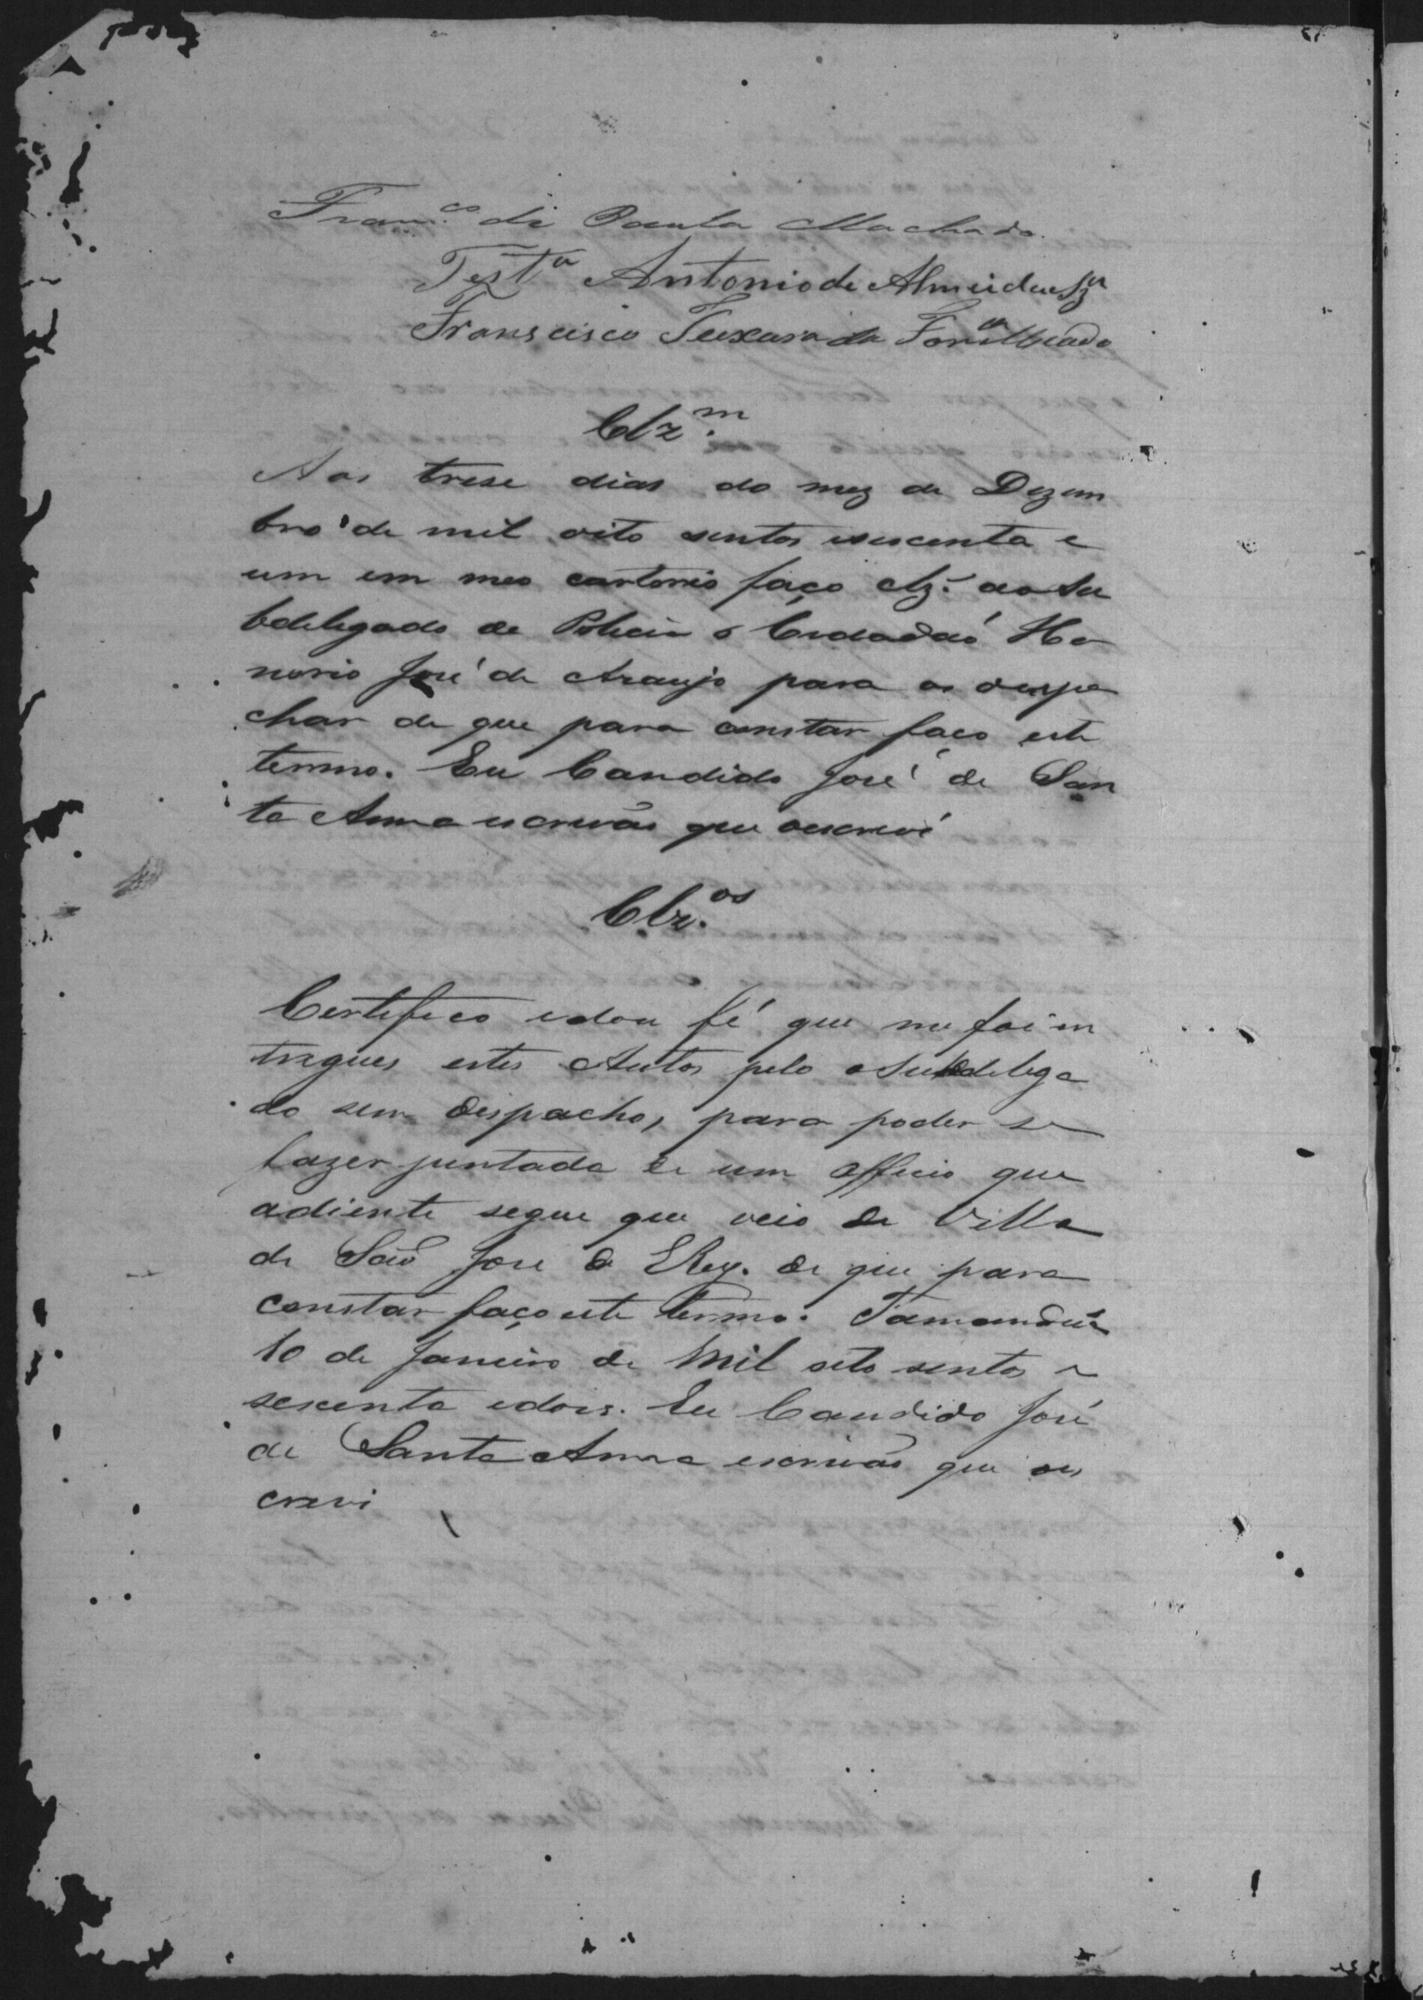 Fran.co de Paula Machado
Test.a Antonio de Almeida Sz.a
Franscisco Teixeira da Fon.ca
Clz.m
Aos trese dias do mez de Dezem
bro de mil oito sentos esescenta e
um em meo cartorio faço Clz. ao Su
bdelegado de Policia o Cidadaó Ho
norio José de Araujo para os despa
char de que para constar faço este
termo. Eu Candido José de San
ta Anna escrivaõ que oescreví
Clz.os
Certefico edou fé que me foi en
tregues estes Autos pelo oSubdelega
do sem despacho, para poder se
fazer juntada de um officio que
adiente segue que veio da Villa
de Saõ Jose d ElRey. de que para
constar faço este termo. Tamanduá
10 de Janeiro de Mil oito sentos e
sescenta edois. Eu Candido José
de Santa Anna escrivaõ que oes
crevi